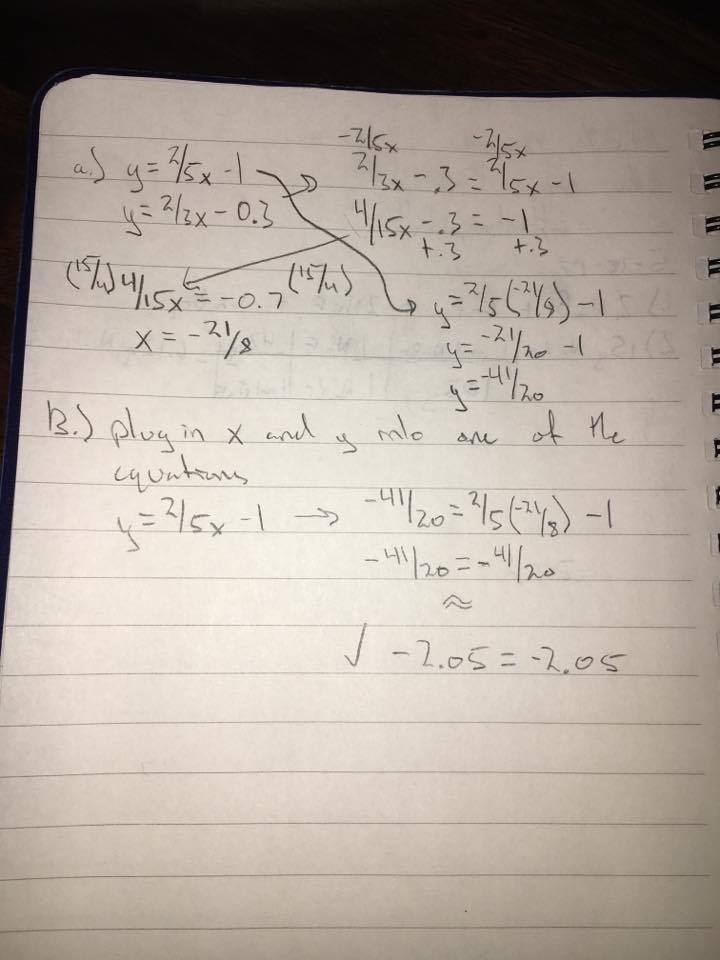 -2/5x -2/5x
a.) y = 2/5x - 1 2/3x - .3 = 2/5x - 1
y = 2/3x - 0.3 4/15x - .3 = -1
+.3 +.3
(15/4) 4/15x = -0.7 (15/4) y = 2/5(-21/8) - 1
x = -21/8 y = -21/20 - 1
y = -41/20
B.) plug in x and y into one of the
equations
y = 2/5x - 1 → -41/20 = 2/5(-21/8) - 1
-41/20 = -41/20
≈
√ -2.05 = -2.05